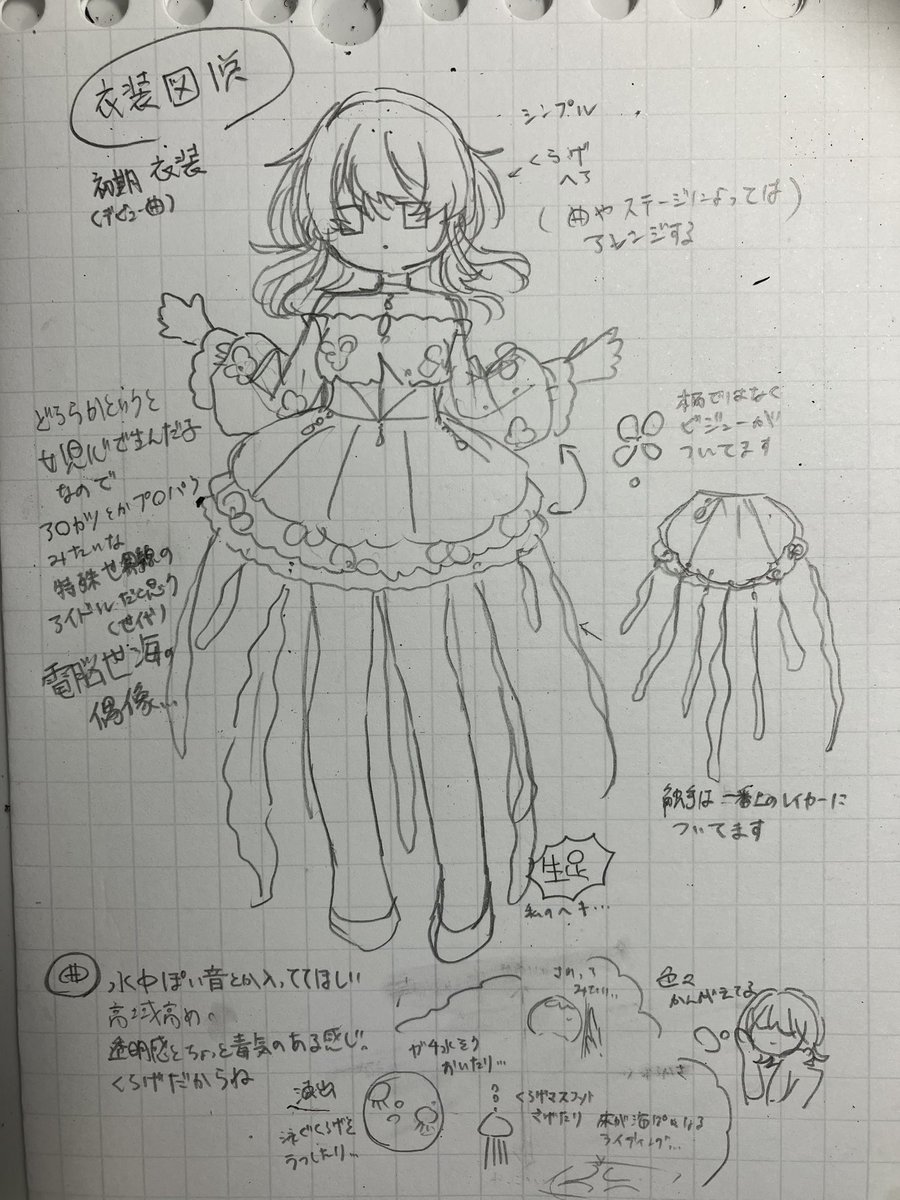 衣装図案
初期衣装
(デビュー曲)
シンプル
くらげ
ヘア
(曲やステージによっては)
アレンジする
どちらかというと
女児心で生んだ子
なので
30ガツとかプロパラ
みたいな
特殊世界線の
アイドルだと思う
(世代)
電脳世海の
偶像…
柄ではなく
ビジューが
ついてます
触手は一番上のレイヤーに
ついてます
生足
私のヘキ…
曲
水中ぽい音とか入っててほしい
高域高め。
透明感とちょっと毒気のある感じ。
くらげだからね
演出
泳ぐくらげを
うつしたり…
ガチ水そう
おいたり…
くらげマスコット
さげたり
床が海ぽくなる
ライティング…
色々
かんがえてる